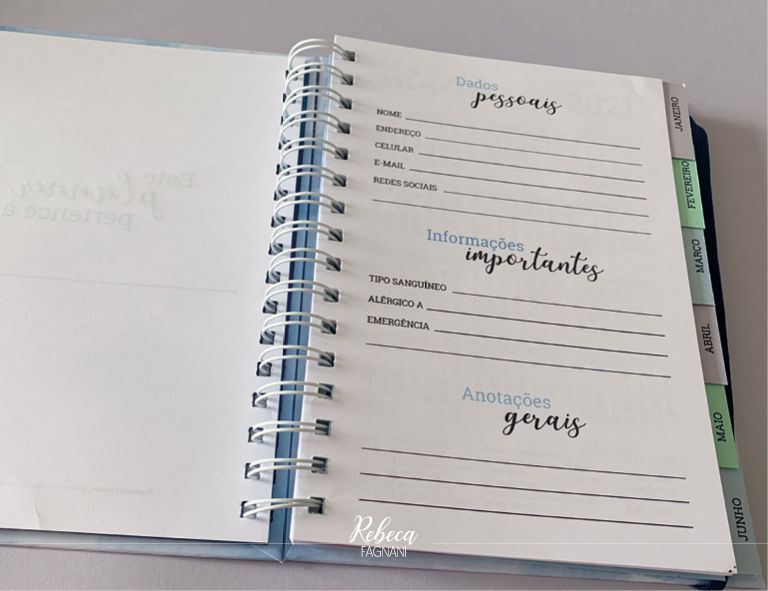 Este
planner
pertence à
Dados
pessoais
2021
NOME
ENDEREÇO
CELULAR
E-MAIL
REDES SOCIAIS
Informações
importantes
TIPO SANGUÍNEO
ALÉRGICO A
EMERGÊNCIA
Anotações
gerais
JANEIRO
FEVEREIRO
MARÇO
ABRIL
MAIO
JUNHO
Rebeca
FAGNANI